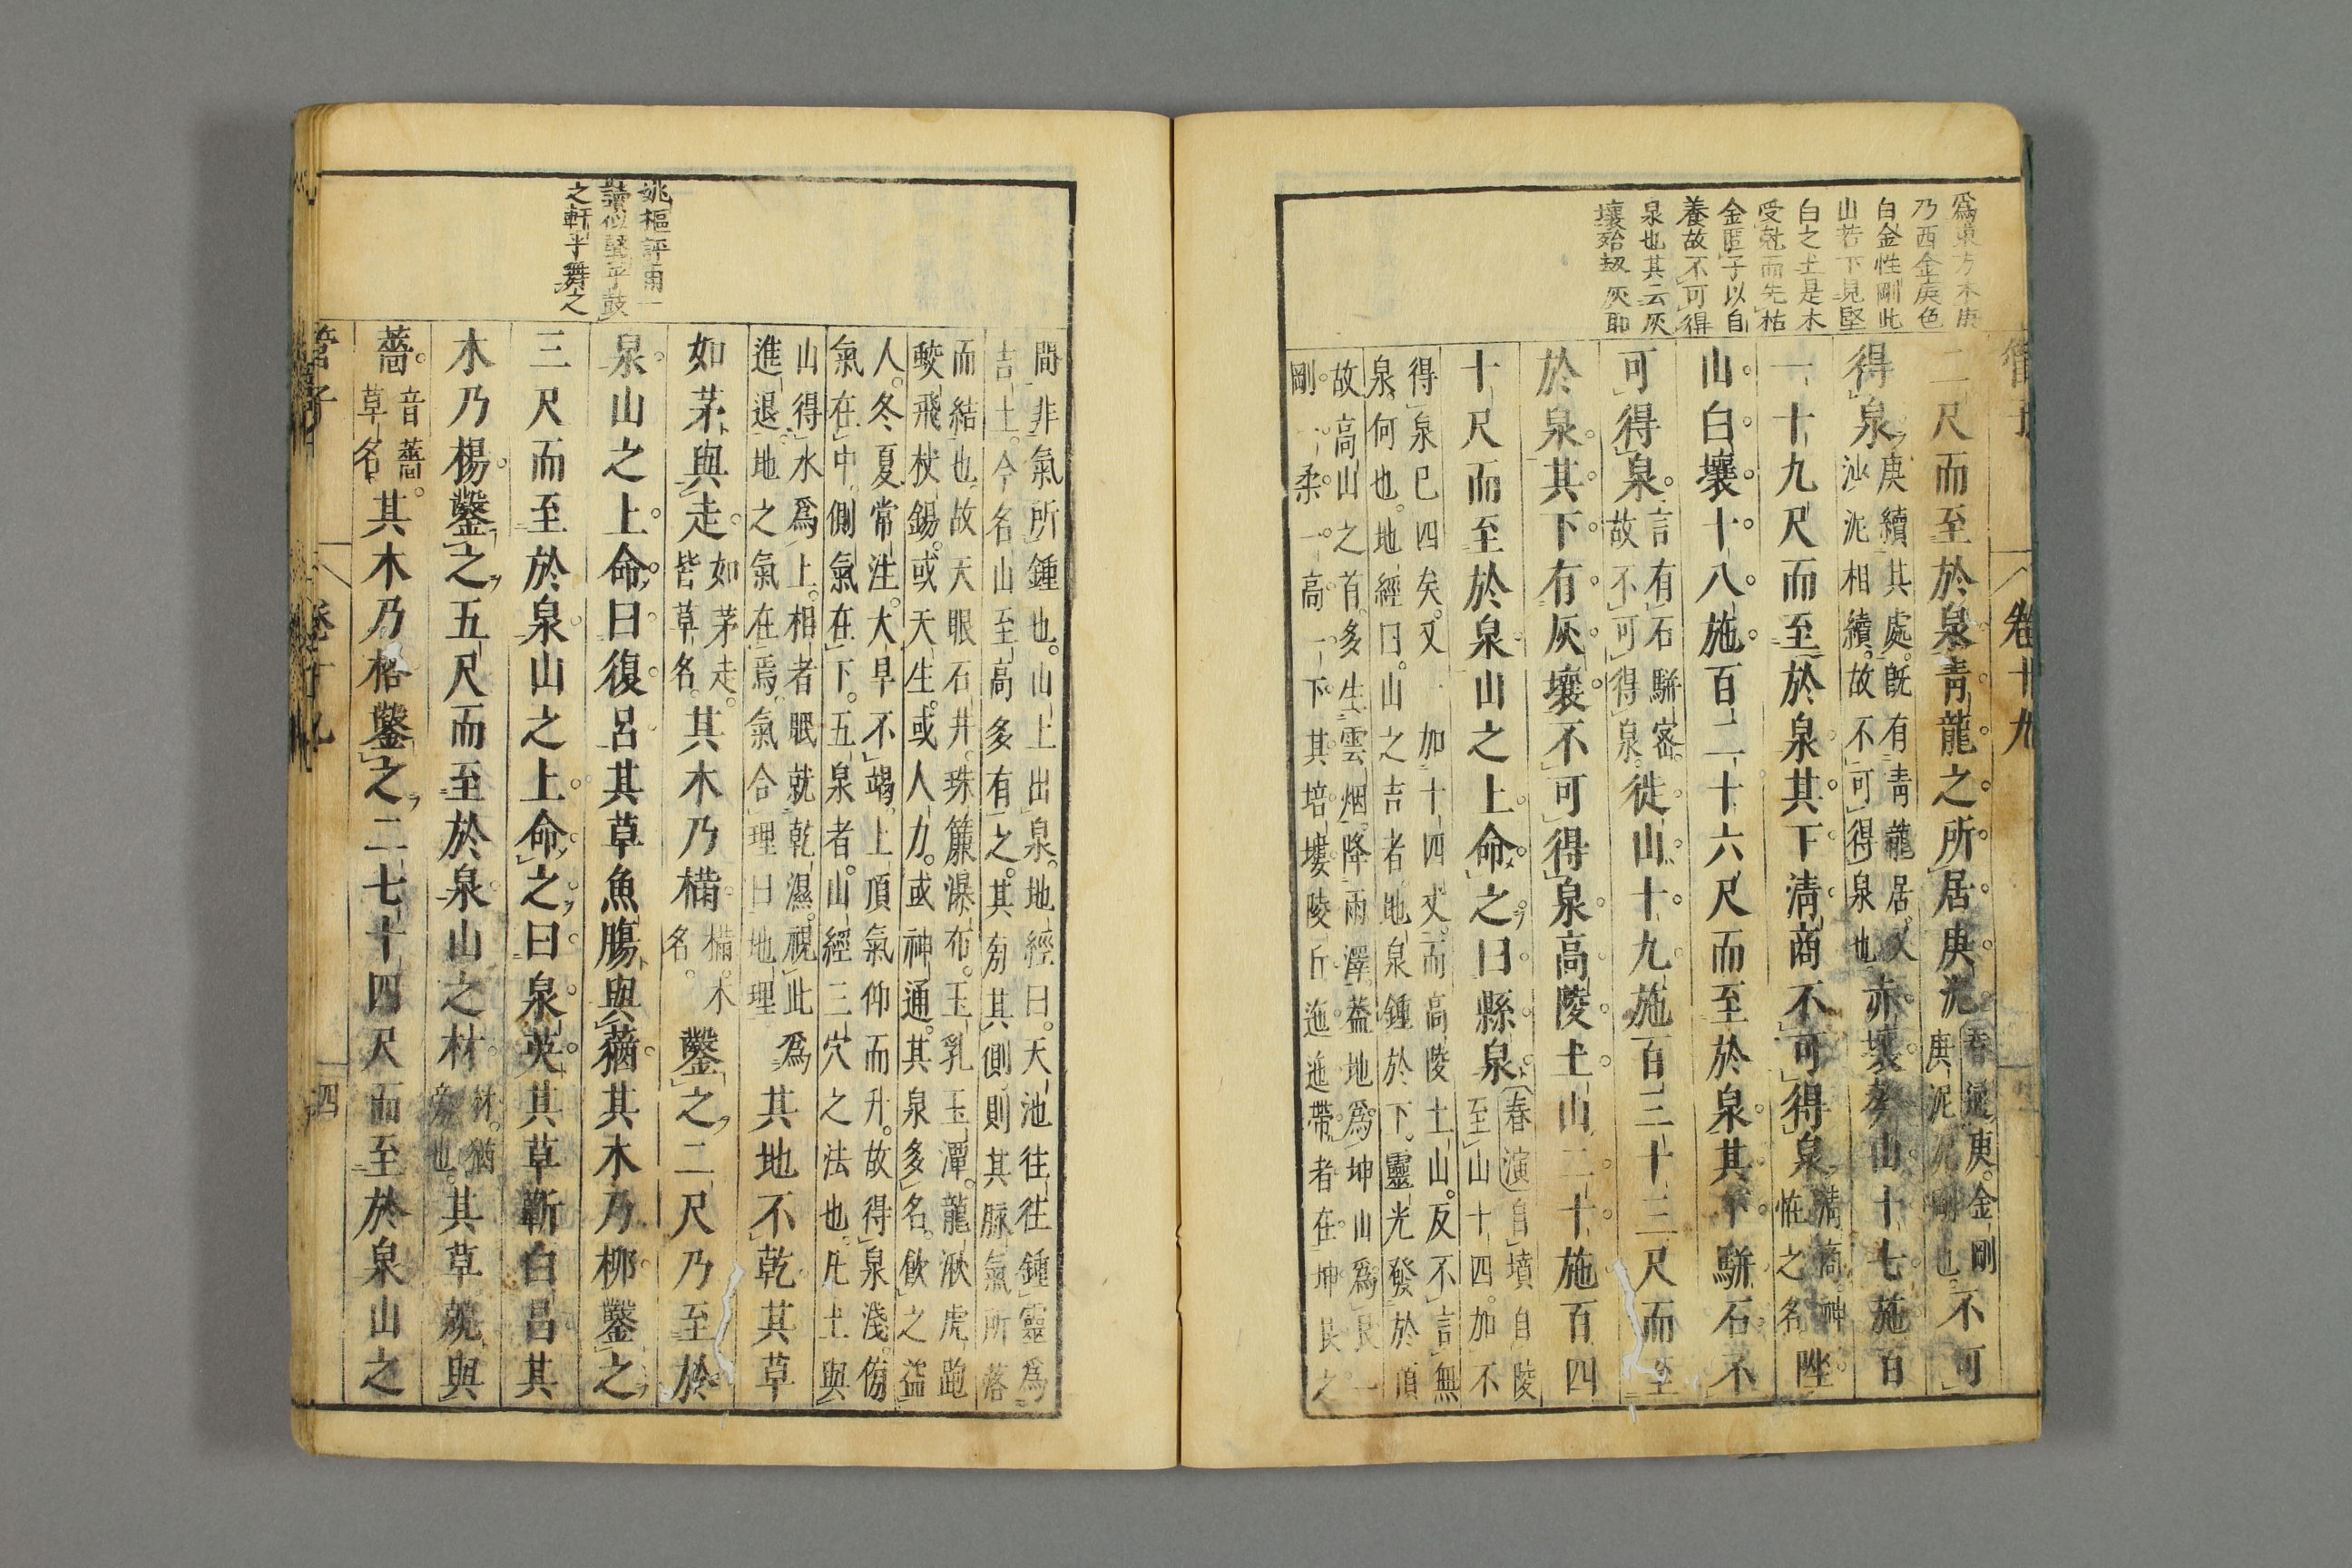 爲東方木庚
乃西金庚色
白金性剛此
山若下見堅
白之土是木
受尅而先枯
金匿子以自
養故不可得
泉也其云灰
壤殆刼灰耶
卷十九
二尺而至於泉青龍之所居庚泥
春演庚金剛
庚泥泥剛也
不可
得泉
庚續其處旣有青龍居又
沙泥相續故不可得泉也
赤壤𠢕山十七施百
一十九尺而至於泉其下淸商不可得泉
淸商神
怪之名
陛
山白壤十八施百二十六尺而至於泉其下駢石不
可得泉
言有石駢宻
故不可得泉
徙山十九施百三十三尺而至
於泉其下有灰壤不可得泉高陵土山二十施百四
十尺而至於泉山之上命之曰縣泉
春演自墳自陵
至山十四加不
得泉已四矣又加十四丈而高陵土山反不言無
泉何也地經曰山之吉者地泉鍾於下靈光發於頂
故高山之首多生雲烟降雨澤葢地爲坤山爲艮一
剛一柔一高一下其培塿陵丘迤迤帶者在坤艮之
間非氣所鍾也山上出泉地經曰天池往往鍾靈爲
吉土今名山至高多有之其旁其側則其脉氣所落
而結也故天眼石井珠簾瀑布玉乳玉潭龍湫虎跑
蛟飛杖錫或天生或人力或神通其泉多名飲之益
人冬夏常注大旱不竭上頂氣仰而升故得泉淺傍
氣在中側氣在下五泉者山經三穴之法也凡土與
山得水爲上相者眠就乾濕視此爲
進退地之氣在焉氣合理曰地理
其地不乾其草
如茅與走
如茅走
皆草名
其木乃樠
樠木
名
鑿之二尺乃至於
泉山之上命曰復呂其草魚腸與蕕其木乃柳鑿之
三尺而至於泉山之上命之曰泉英其草蘄白昌其
木乃楊鑿之五尺而至於泉山之材
材猶
旁也
其草兢與
薔
音薔
草名
其木乃格鑿之二七十四尺而至於泉山之
姚樞評甯一
讀似
之軒乎舞之
管子
卷十九
四